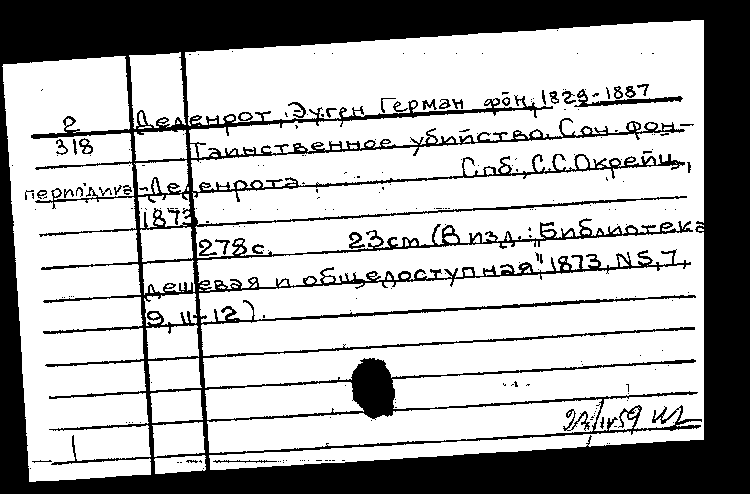 2 Деденрот, Эуген Герман фон, 1829-1887
318 Таинственное убийство. Соч. фон-
периодика -Деденрота. Спб., С.С.Окрейц,
1873.
278с. 23cm (В изд.: „Библиотека
дешевая и общедоступная" 1873, N5,7,
9, 11-12).
23/IV 59